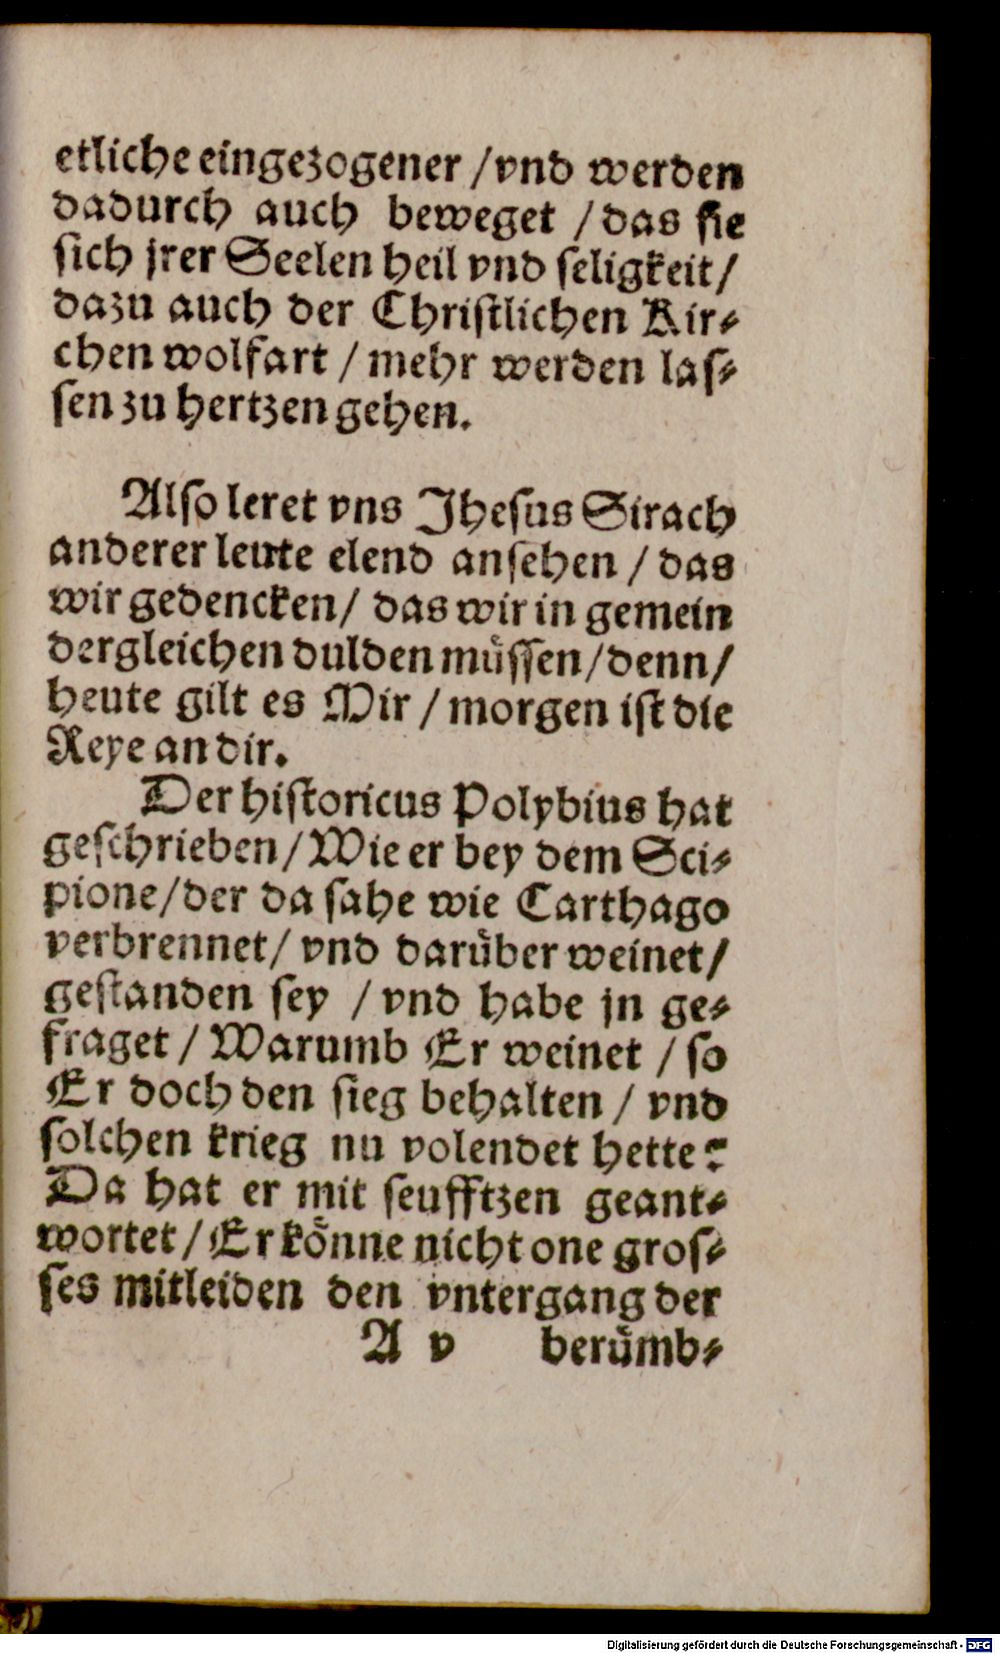 etliche eingezogener / vnd werden
dadurch auch beweget / das sie
sich jrer Seelen heil vnd seligkeit /
dazu auch der Christlichen Kir⸗
chen wolfart / mehr werden las⸗
sen zu hertzen gehen.
Also leret vns Jhesus Sirach
anderer leute elend ansehen / das
wir gedencken / das wir in gemein
dergleichen dulden muͤssen / denn /
heute gilt es Mir / morgen ist die
Reye an dir.
Der historicus Polybius hat
geschrieben / Wie er bey dem Sci⸗
pione / der da sahe wie Carthago
verbrennet / vnd daruͤber weinet /
gestanden sey / vnd habe jn ge⸗
fraget / Warumb Er weinet / so
Er doch den sieg behalten / vnd
solchen krieg nu volendet hette?
Da hat er mit seufftzen geant⸗
wortet / Er koͤnne nicht one gros⸗
ses mitleiden den vntergang der
A v beruͤmb⸗
Digitalisierung gefördert durch die Deutsche Forschungsgemeinschaft - DFG